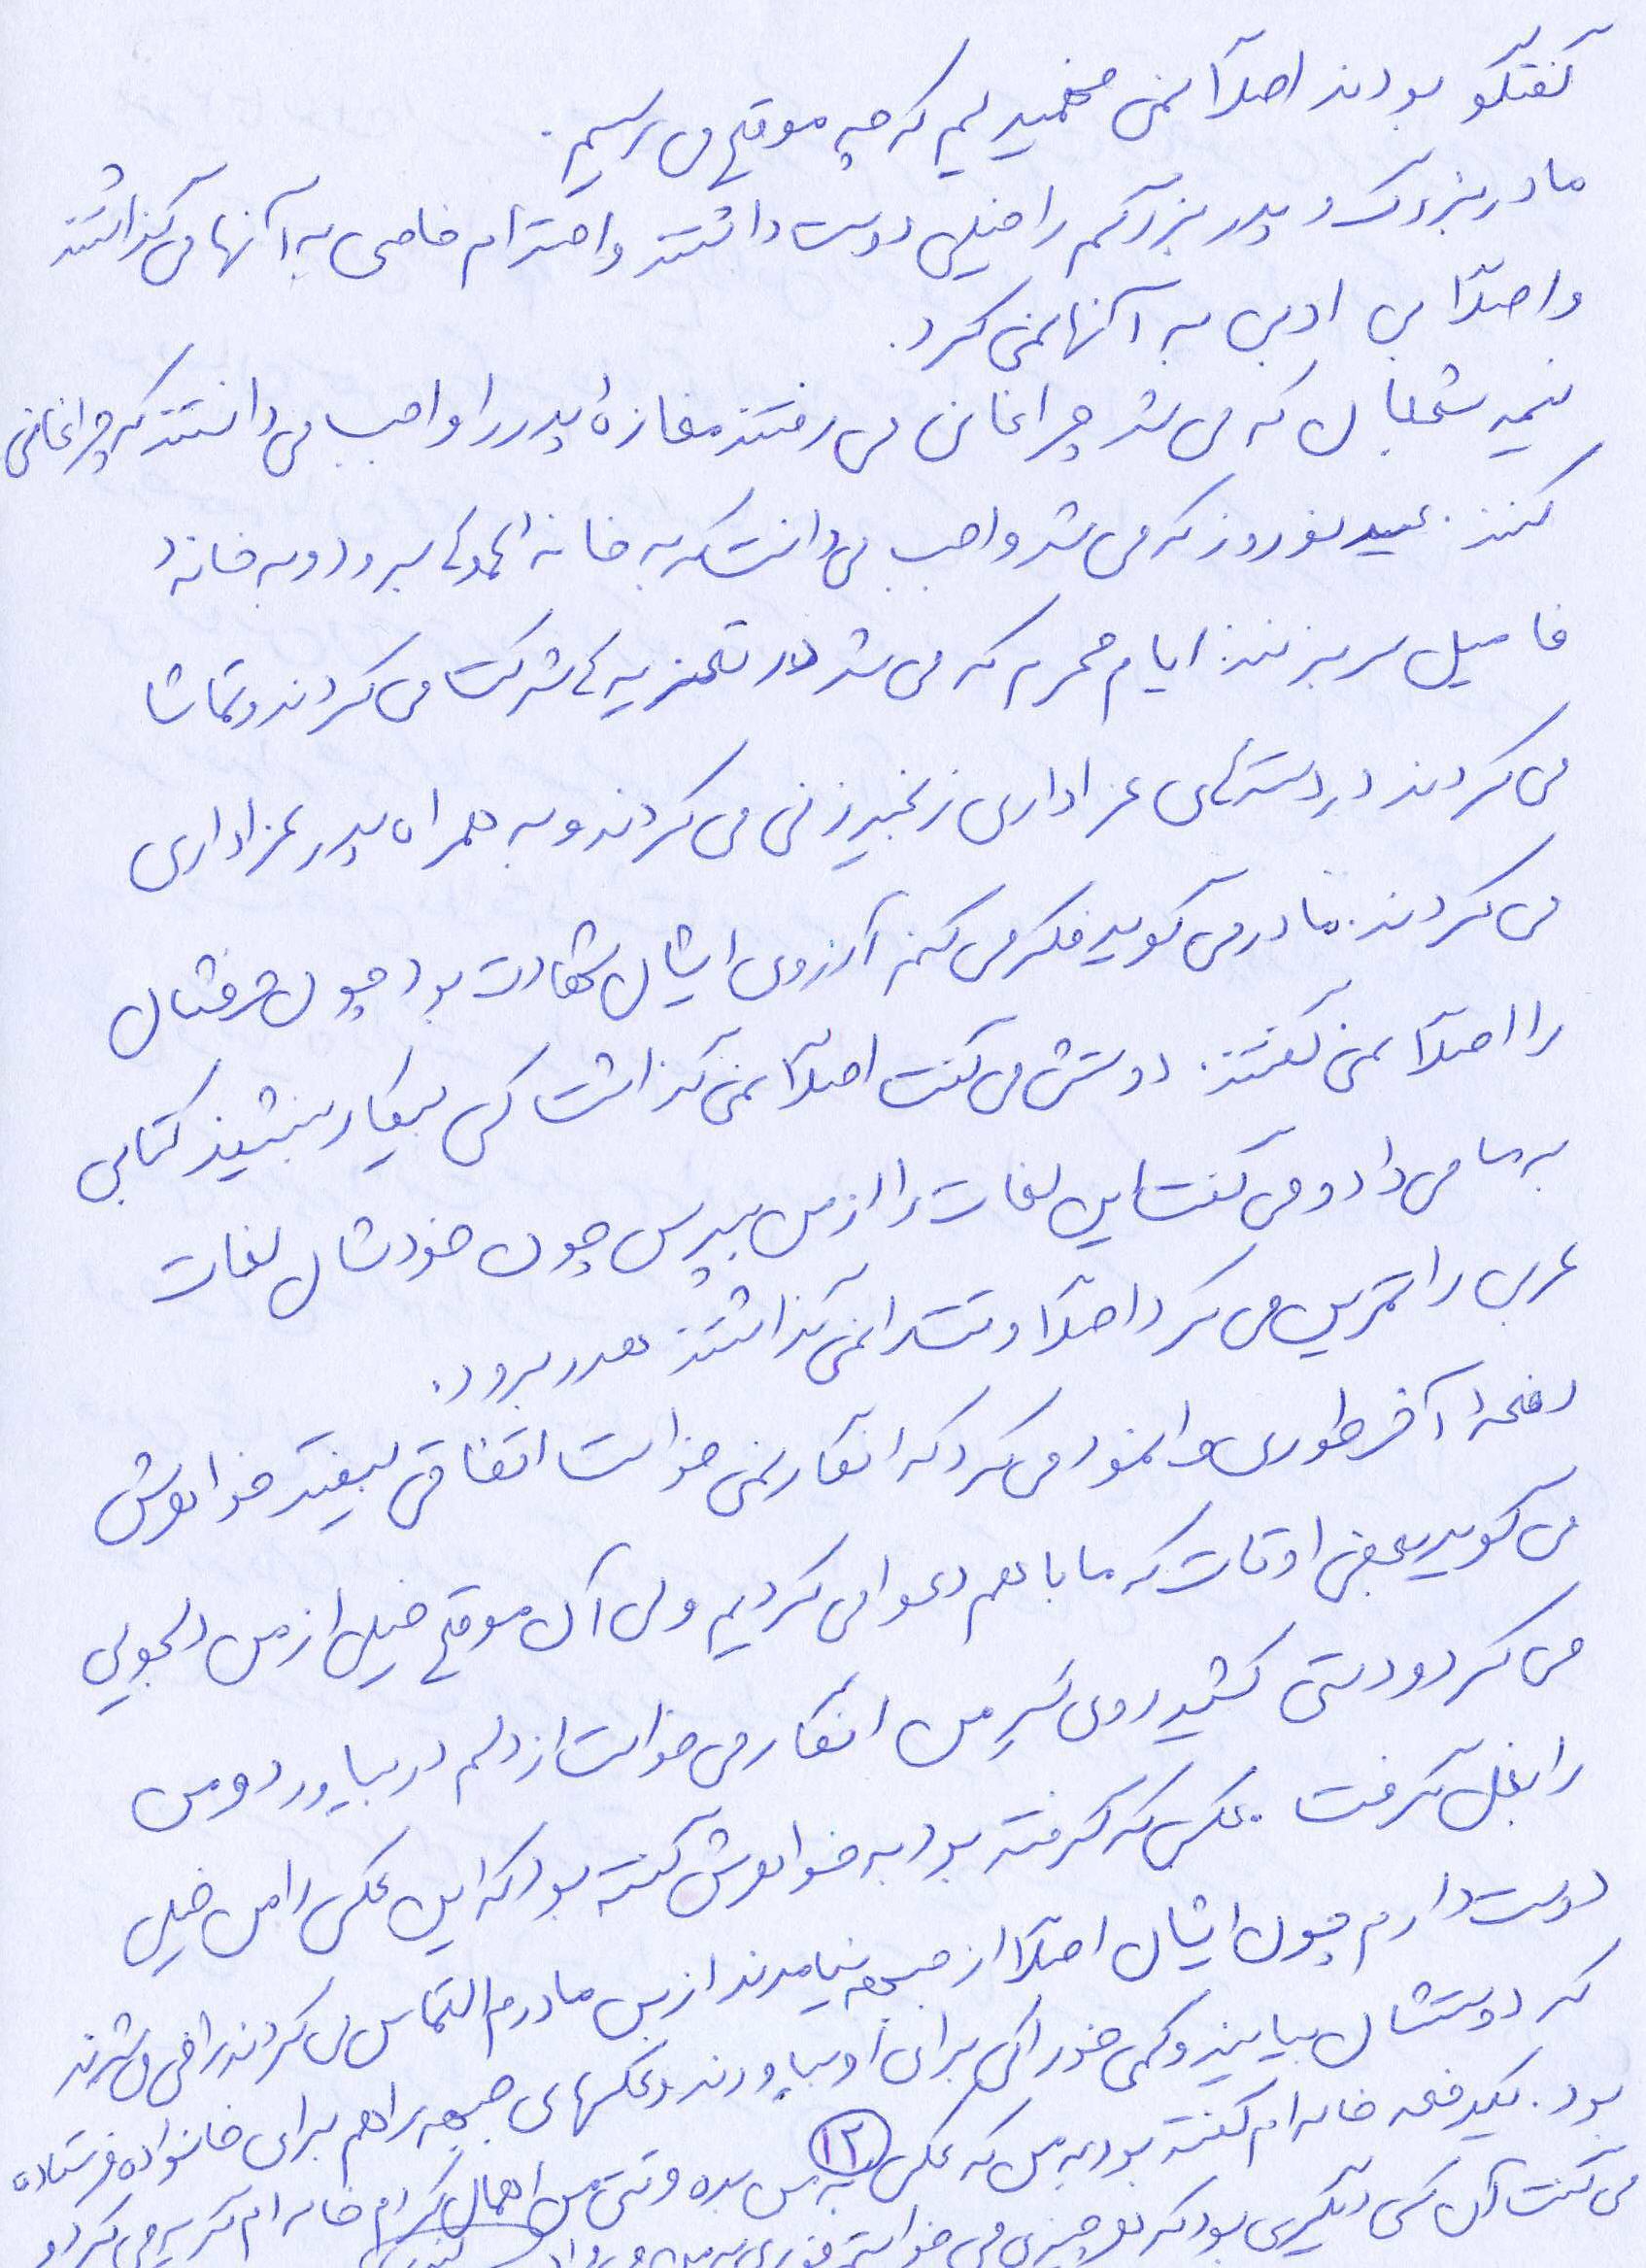 گفتگو بودند اصلاً نمی فهمیدیم که چه موقع می رسیم.
مادربزرگ و پدربزرگم را خیلی دوست داشتند و احترام خاصی به آنها می گذاشتند
و اصلاً بی ادبی به آنها نمی کرد.
نیمه شعبان که می شد چراغانی می رفتند مغازهٔ پدر را واجب می دانستند که چراغانی
کنند. عید نوروز که می شد واجب می دانست که به خانه برود و به خانهٔ
فامیل سر بزنند. ایام محرم که می شد در تعزیه ها شرکت می کردند و تماشا
می کردند در دسته های عزاداری زنجیرزنی می کردند و به همراه پدر عزاداری
می کردند. مادر می گوید فکر می کنم آرزوی ایشان شهادت بود چون حرفشان
را اصلاً نمی گفتند. دوستش می گفت اصلاً نمی گذاشت کسی بیکار بنشیند کتابی
به ما می داد و می گفت این لغات را از من بپرس چون خودشان لغات
عربی را تمرین می کرد اصلاً وقت را نمی گذاشتند هدر برود.
دفعهٔ آخر طوری وانمود می کرد که انگار نمی خواست اتفاقی بیفتد خواهرش
می گوید بعضی اوقات که ما با هم دعوا می کردیم ولی آن موقع خیلی از من دلجویی
می کرد و دستی کشید روی سر من انگار می خواست از دلم در بیاورد و من
را بغل گرفت. عکسی که گرفته بود به خواهرش گفته بود که این عکس را من خیلی
دوست دارم چون ایشان اصلاً از جبهه نیامدند از بس مادرم التماس می کردند راضی می شدند
که دوستشان بیایند و کمی خوراکی برای او بیاورند و عکسهای جبهه را هم برای خانواده فرستاده
بود. یکدفعه خاله ام گفته بود به من که عکس به من بده وقتی من اهمال کردم خاله ام گریه می کرد و
می گفت آن کس دیگری بود که هر چیزی می خواستم فوری به من می داد
۱۲